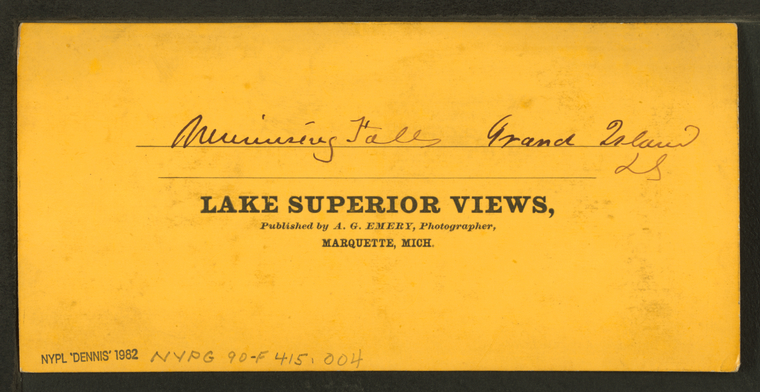 Munising Falls Grand Island
LS
LAKE SUPERIOR VIEWS,
Published by A. G. EMERY, Photographer,
MARQUETTE, MICH.
NYPL 'DENNIS' 1982 NYPG 90-F 415.004